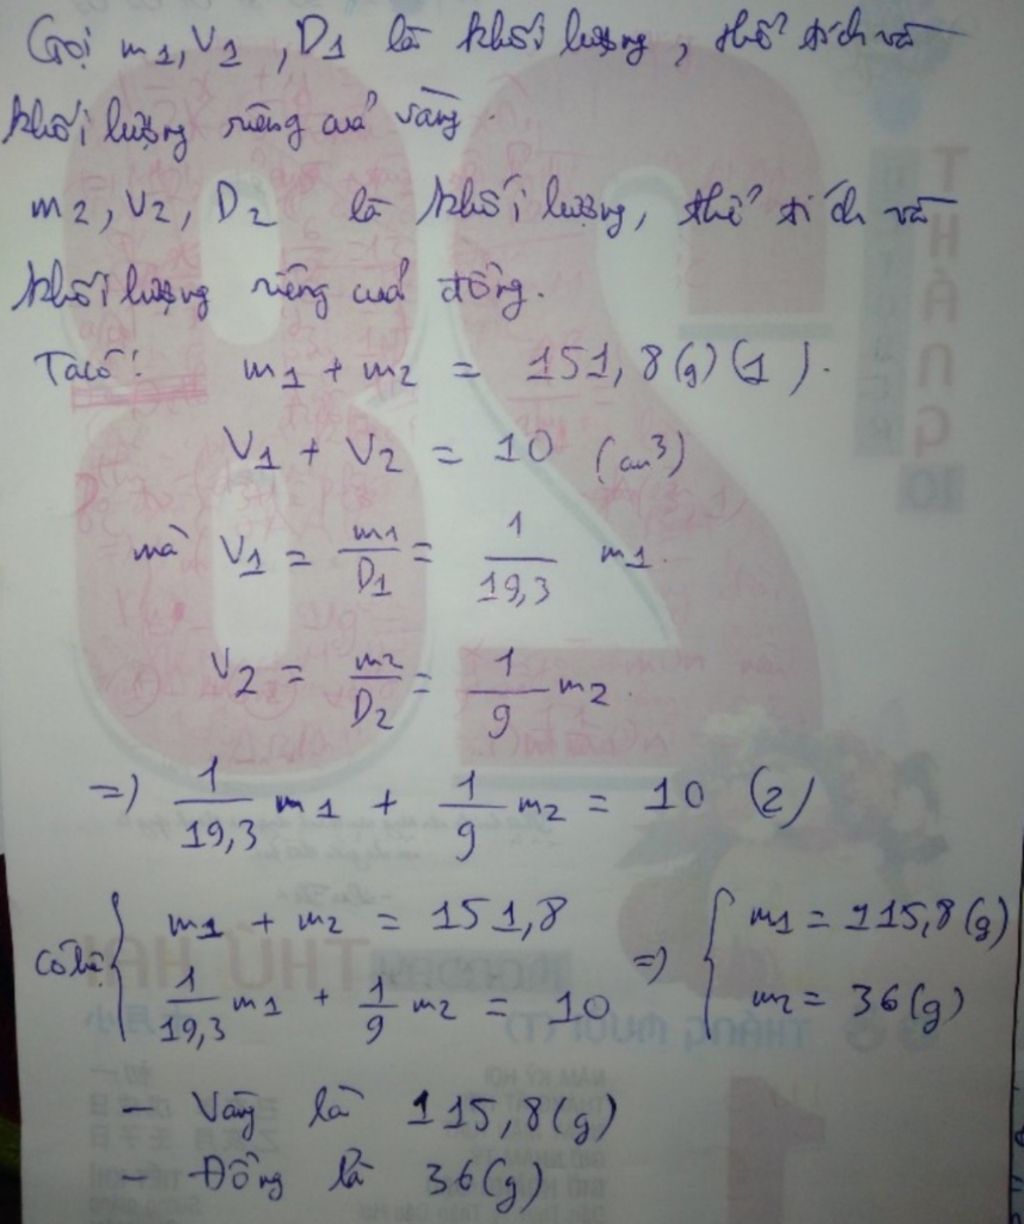 Gọi m1, V1, D1 là khối lượng, thể tích và
khối lượng riêng của vàng.
m2, V2, D2 là khối lượng, thể tích và
khối lượng riêng của đồng.
Ta có: m1 + m2 = 151,8(g) (1).
V1 + V2 = 10 (cm³)
mà V1 = m1/D1 = 1/19,3 m1.
V2 = m2/D2 = 1/9 m2.
=> 1/19,3 m1 + 1/9 m2 = 10 (2)
có hệ { m1 + m2 = 151,8 => { m1 = 115,8(g)
1/19,3 m1 + 1/9 m2 = 10 m2 = 36(g)
- Vàng là 115,8(g)
- Đồng là 36(g)
THÁNG
10
THỨ HAI
THÁNG MƯỜI (T)